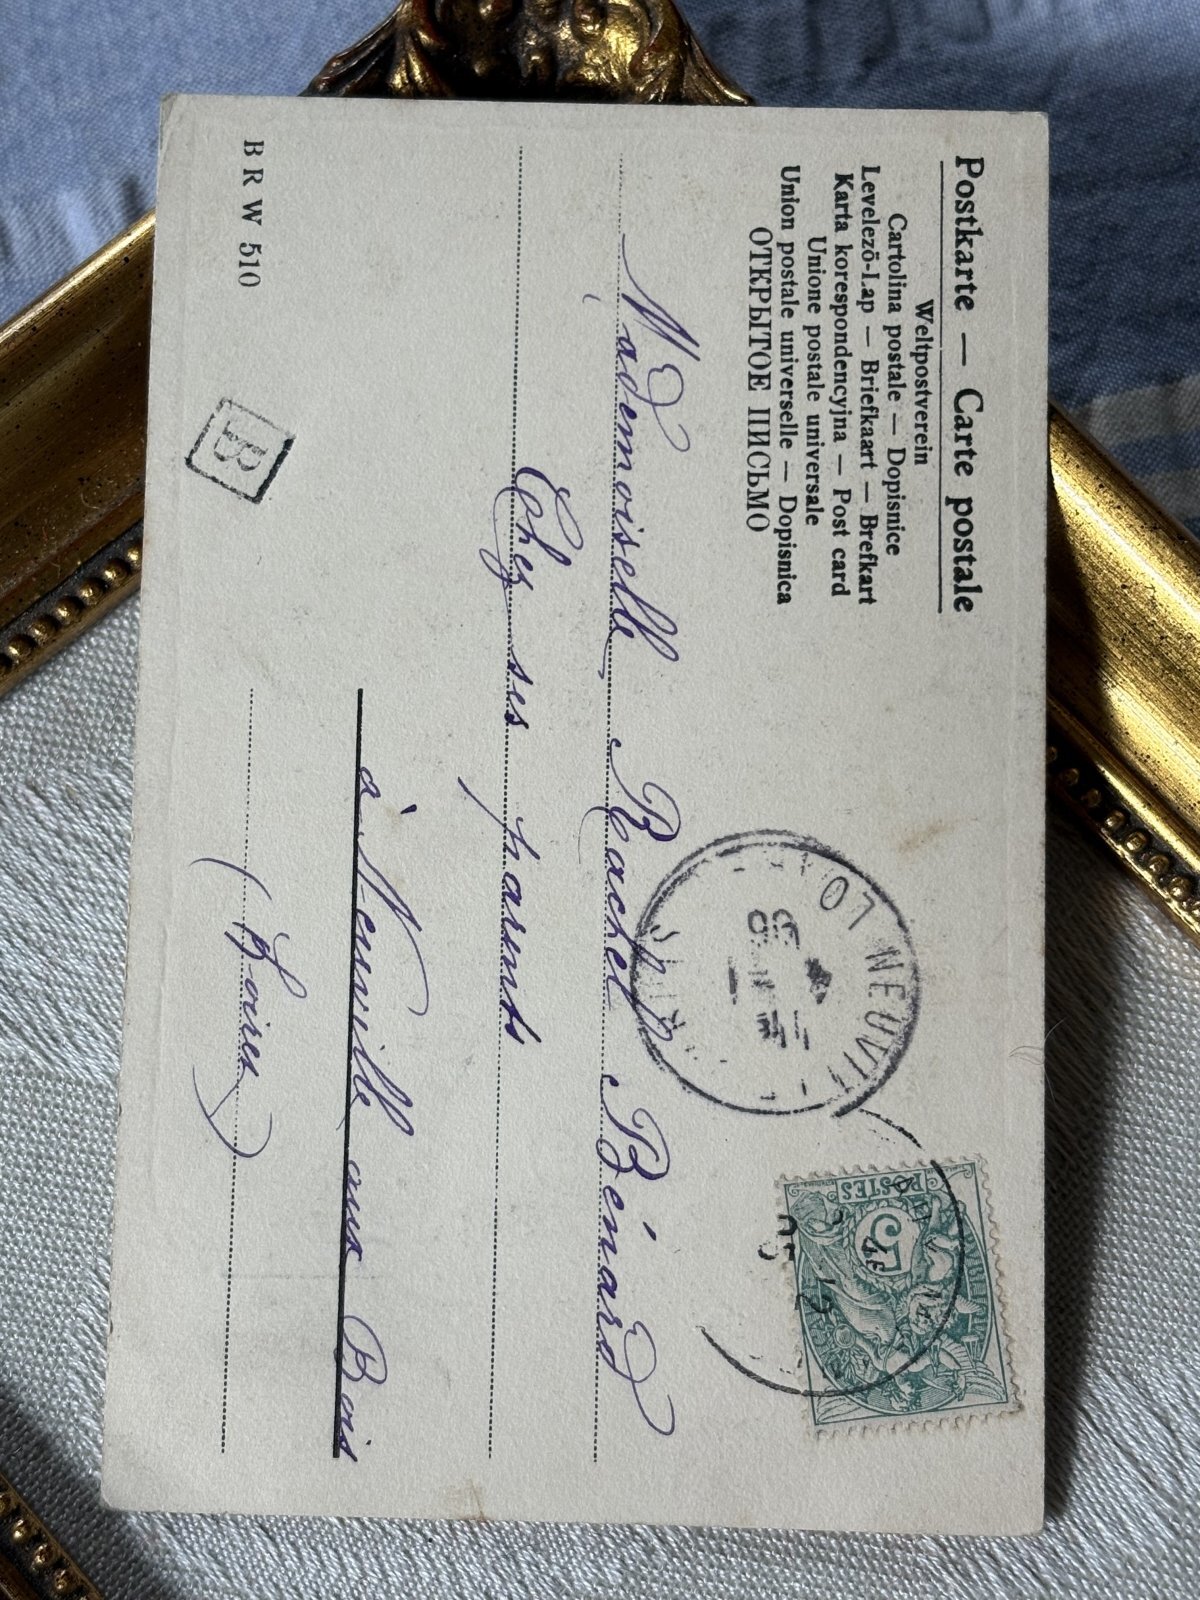 Postkarte — Carte postale
Weltpostverein
Cartolina postale — Dopisnice
Levelezö-Lap — Briefkaart — Brefkart
Karta korespondencyjna — Post card
Unione postale universale
Union postale universelle — Dopisnica
ОТКРЫТОЕ ПИСЬМО
POSTES
5
NEUVIL
Mademoiselle Rachel Bénard
Chez ses parents
à Neuville aux Bois
(Loiret)
B R W 510
B